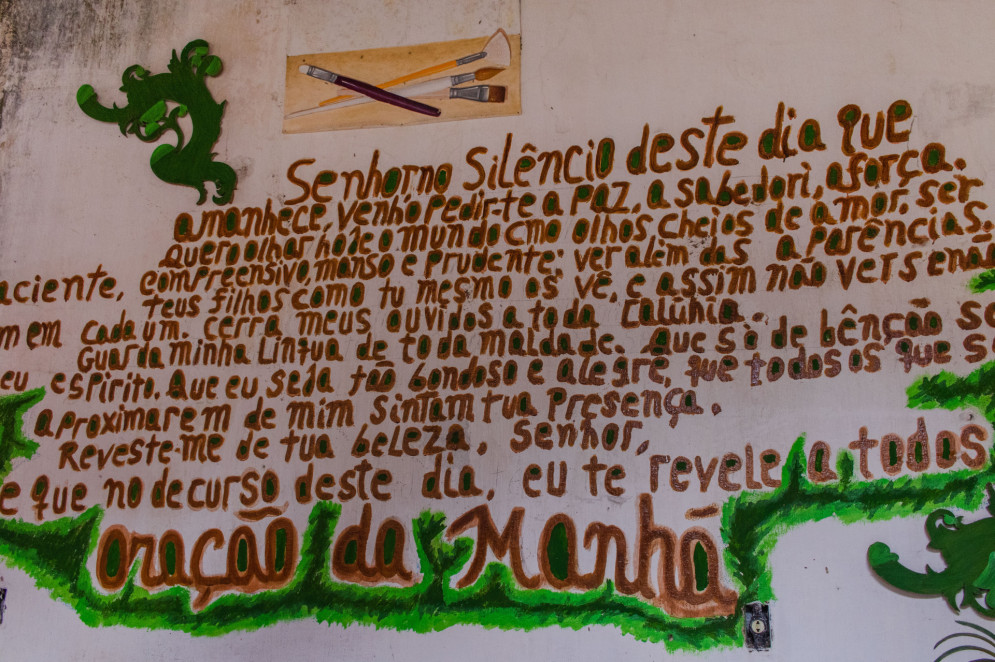 Senhor no Silêncio deste dia que
amanhece, venho pedir-te a paz, a sabedori, a força.
quero olhar hoje o mundo cmo olhos cheios de amor. ser
aciente, compreensivo, manso e prudente; ver além das aparências.
teus filhos como tu mesmo os vê, e assim não ver senão
m em cada um. cerra meus ouvidos a toda calúnia.
Guarda minha Lingua de toda maldade. Que só de bênção se
eu espirito. Que eu seja tão bondoso e alegre, que todos os que s
aproximarem de mim sintam tua Presença.
Reveste-me de tua beleza, Senhor,
e que no decurso deste dia, eu te revele a todos
oração da Manhã